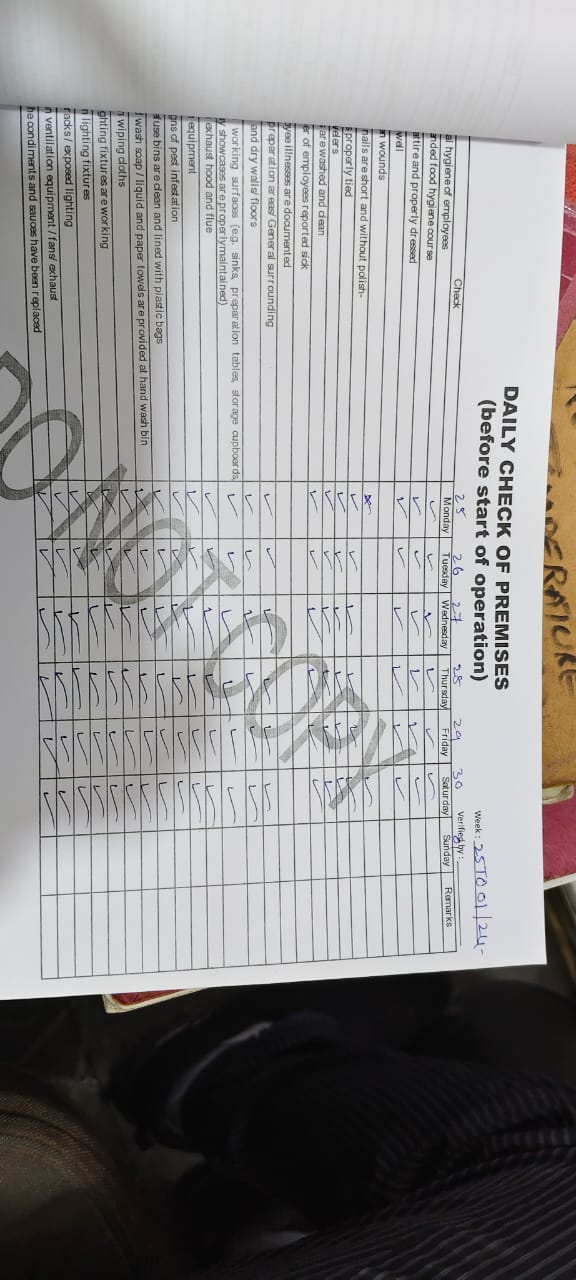 DAILY CHECK OF PREMISES
(before start of operation)
Week: 25 TO 01/24-
Verified by:
25 26 27 28 29 30
Check Monday Tuesday Wednesday Thursday Friday Saturday Sunday Remarks
hygiene of employees
food hygiene course
attire and properly dressed
well
wounds
nails are short and without polish-
properly tied
are washed and clean
er of employees reported sick
oyee illnesses are documented
preparation areas/ General surrounding
and dry walls/ floors
working surfaces (e.g. sinks, preparation tables, storage cupboards,
y showcases are properly maintained)
exhaust hood and flue
equipment
gns of pest infestation
fuse bins are clean and lined with plastic bags
wash soap / liquid and paper towels are provided at hand wash bin
wiping cloths
ghting fixtures are working
lighting fixtures
racks/ exposed lighting
n ventilation equipment / fans/ exhaust
he condiments and sauces have been replaced
DO NOT COPY